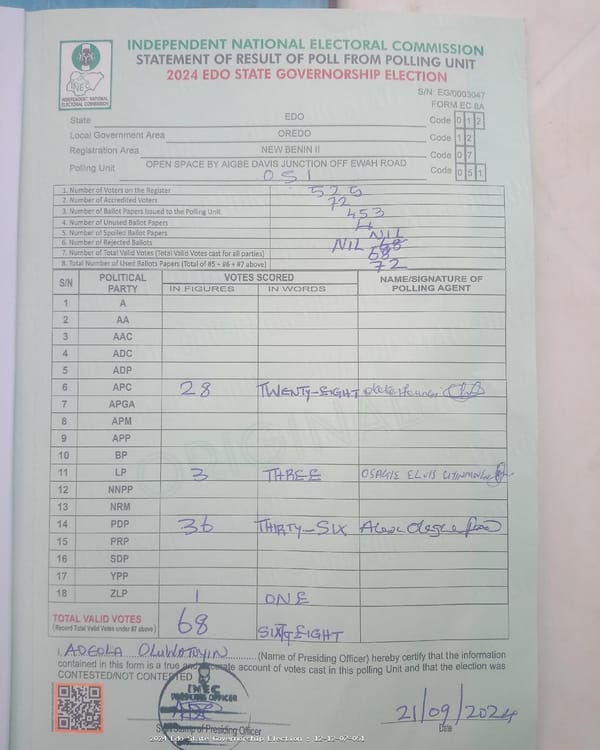 INDEPENDENT NATIONAL ELECTORAL COMMISSION
STATEMENT OF RESULT OF POLL FROM POLLING UNIT
2024 EDO STATE GOVERNORSHIP ELECTION
INEC
INDEPENDENT NATIONAL
ELECTORAL COMMISSION
S/N: EG/0003047
FORM EC 8A
State EDO Code 0 1 2
Local Government Area OREDO Code 1 2
Registration Area NEW BENIN II Code 0 7
Polling Unit OPEN SPACE BY AIGBE DAVIS JUNCTION OFF EWAH ROAD Code 0 5 1
051
1. Number of Voters on the Register 525
2. Number of Accredited Voters 72
3. Number of Ballot Papers Issued to the Polling Unit 453
4. Number of Unused Ballot Papers 4
5. Number of Spoiled Ballot Papers NIL
6. Number of Rejected Ballots NIL 68
7. Number of Total Valid Votes (Total Valid Votes cast for all parties) 68
8. Total Number of Used Ballots Papers (Total of #5 + #6 + #7 above) 72
S/N POLITICAL PARTY VOTES SCORED NAME/SIGNATURE OF POLLING AGENT
IN FIGURES IN WORDS
1 A
2 AA
3 AAC
4 ADC
5 ADP
6 APC 28 TWENTY-EIGHT
7 APGA
8 APM
9 APP
10 BP
11 LP 3 THREE OSAGIE ELVIS
12 NNPP
13 NRM
14 PDP 36 THIRTY-SIX
15 PRP
16 SDP
17 YPP
18 ZLP 1 ONE
TOTAL VALID VOTES 68 SIXTY EIGHT
(Record Total Valid Votes under #7 above)
I, ADEOLA OLUWATOYIN (Name of Presiding Officer) hereby certify that the information
contained in this form is a true and accurate account of votes cast in this polling Unit and that the election was
CONTESTED/NOT CONTESTED
INEC
PRESIDING OFFICER
21/09/2024
Sign/Stamp of Presiding Officer Date
2024 Edo State Governorship Election : 12-12-07-051
ORIGINAL